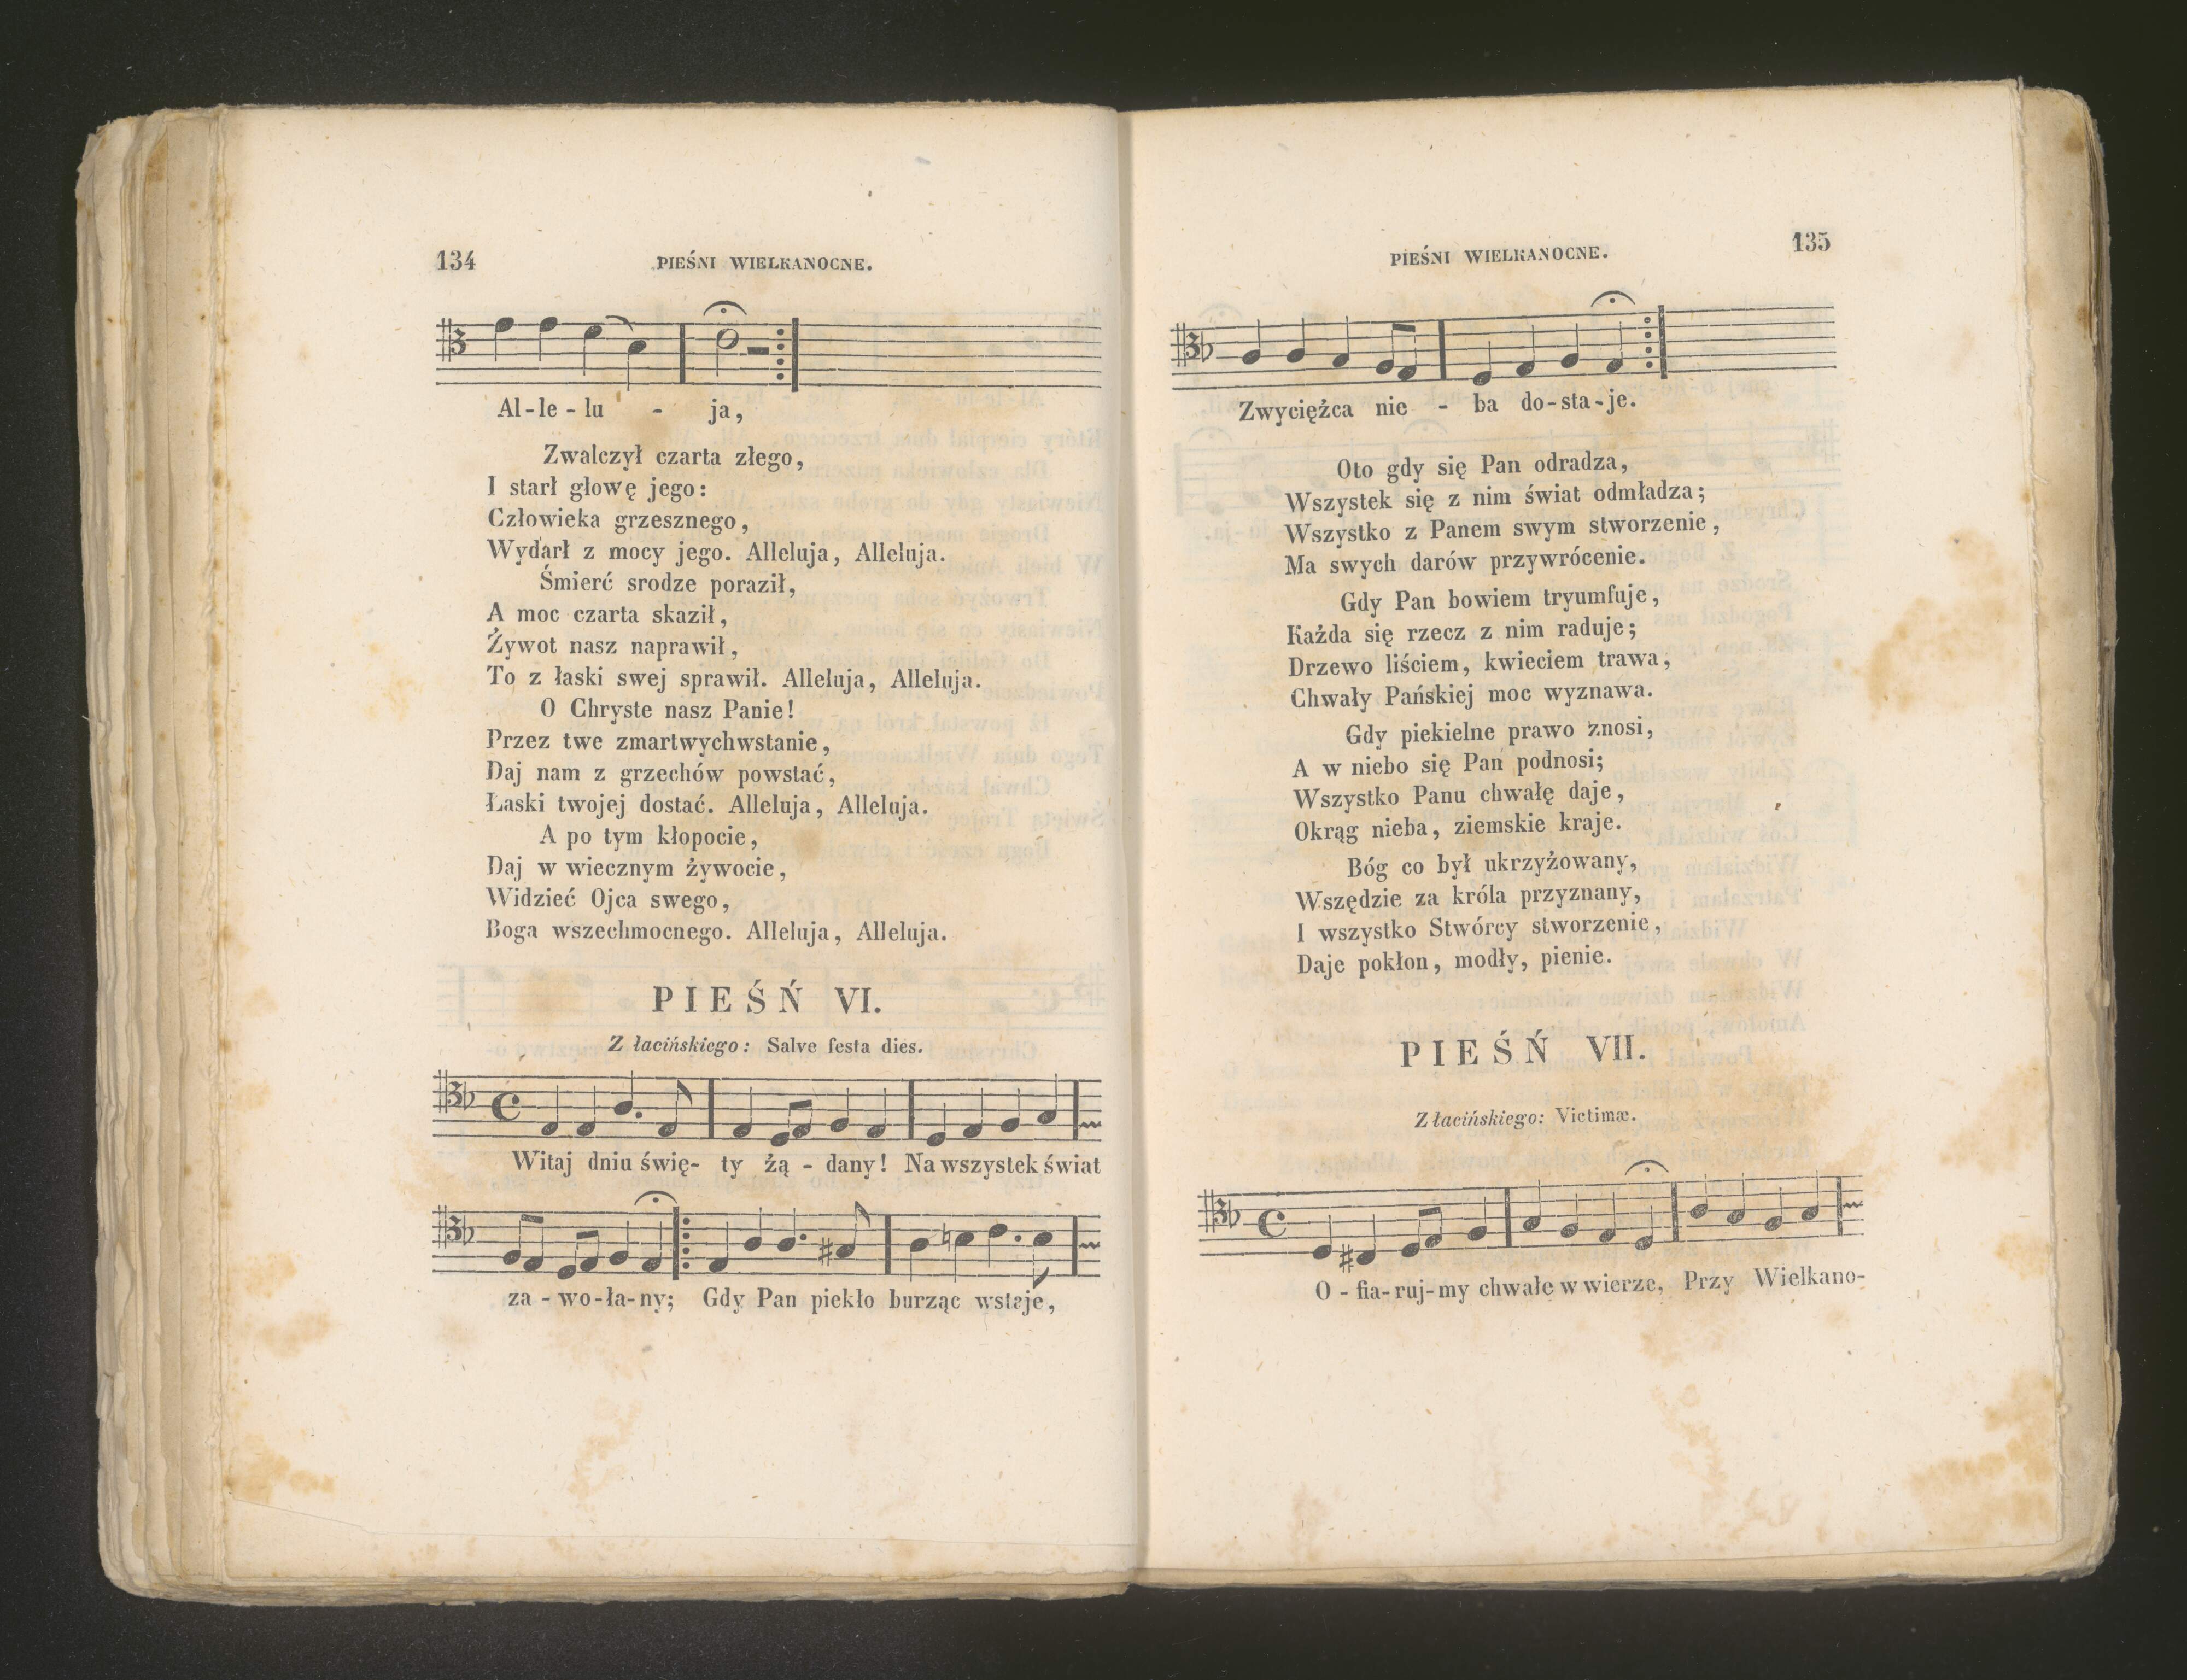 134
PIEŚNI WIELKANOCNE.
Al-le-lu - ja,
Zwalczył czarta złego,
I starł głowę jego:
Człowieka grzesznego,
Wydarł z mocy jego. Alleluja, Alleluja.
Śmierć srodze poraził,
A moc czarta skaził,
Żywot nasz naprawił,
To z łaski swej sprawił. Alleluja, Alleluja.
O Chryste nasz Panie!
Przez twe zmartwychwstanie,
Daj nam z grzechów powstać,
Łaski twojej dostać. Alleluja, Alleluja.
A po tym kłopocie,
Daj w wiecznym żywocie,
Widzieć Ojca swego,
Boga wszechmocnego. Alleluja, Alleluja.
PIEŚŃ VI.
Z łacińskiego: Salve festa dies.
Witaj dniu świę- ty żą - dany! Na wszystek świat
za - wo-ła-ny; Gdy Pan piekło burząc wstaje,
PIEŚNI WIELKANOCNE.
135
Zwyciężca nie - ba do-sta-je.
Oto gdy się Pan odradza,
Wszystek się z nim świat odmładza;
Wszystko z Panem swym stworzenie,
Ma swych darów przywrócenie.
Gdy Pan bowiem tryumfuje,
Każda się rzecz z nim raduje;
Drzewo liściem, kwieciem trawa,
Chwały Pańskiej moc wyznawa.
Gdy piekielne prawo znosi,
A w niebo się Pan podnosi;
Wszystko Panu chwałę daje,
Okrąg nieba, ziemskie kraje.
Bóg co był ukrzyżowany,
Wszędzie za króla przyznany,
I wszystko Stwórcy stworzenie,
Daje pokłon, modły, pienie.
PIEŚŃ VII.
Z łacińskiego: Victimæ.
O - fia-ruj-my chwałę w wierze, Przy Wielkano-